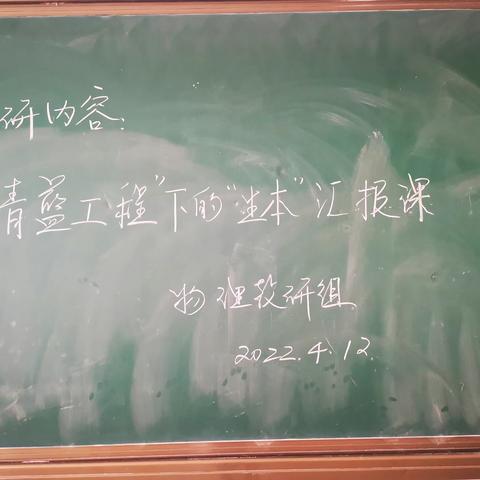 研内容:
青蓝工程"下的"生本"汇报课
物理教研组
2022.4.12.